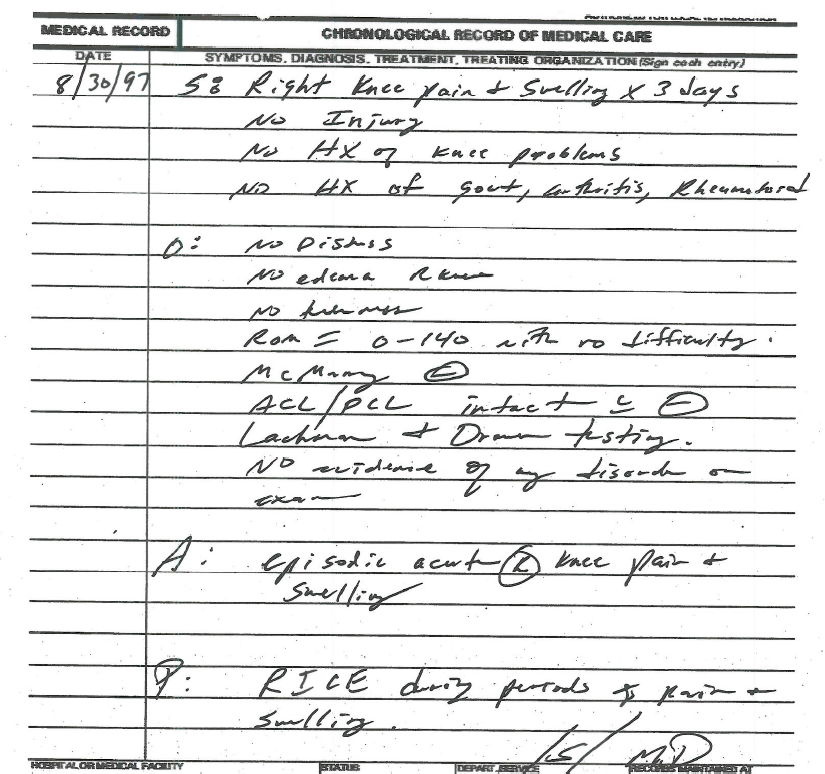 MEDICAL RECORD CHRONOLOGICAL RECORD OF MEDICAL CARE
DATE SYMPTOMS, DIAGNOSIS, TREATMENT, TREATING ORGANIZATION (Sign each entry)
8/30/97 S: Right Knee pain & Swelling x 3 days
No Injury
No HX of knee problems
No HX of gout, arthritis, Rheumatoid
O: No Distress
No edema R knee
No
ROM = 0-140 with no difficulty.
McMurray ⊖
ACL/PCL intact c̲ ⊖
Lachman & Drawer testing.
NO evidence of any disorder on
exam
A: episodic acute Ⓡ knee pain &
Swelling
P: RICE during periods of pain &
Swelling.
/s/ MD
HOSPITAL OR MEDICAL FACILITY STATUS DEPART./SERVICE RECORDS MAINTAINED AT